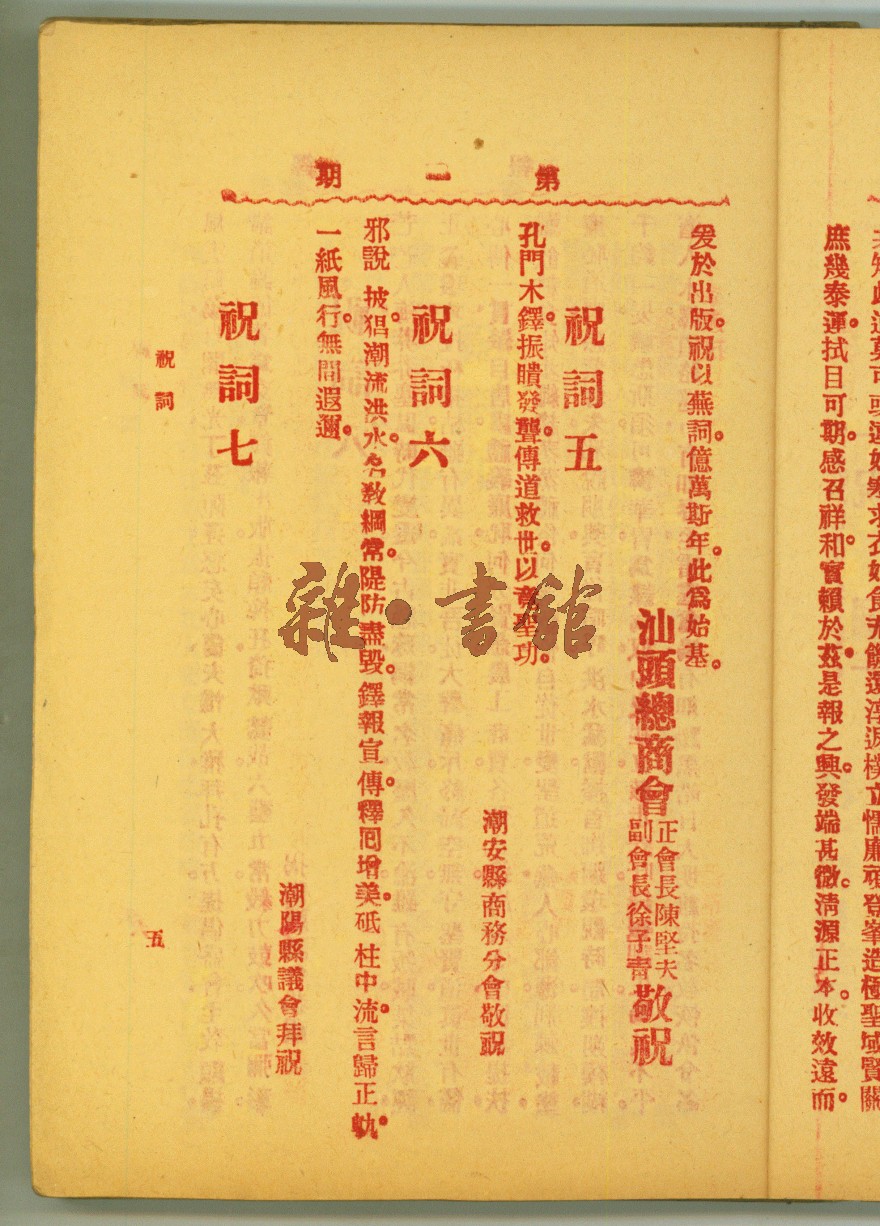 庶幾泰運。拭目可期。感召祥和。實賴於茲。是報之興。發端甚微。清源正本。收效遠而。
第二期
爰於出版。祝以蕪詞。億萬斯年。此爲始基。
汕頭總商會正會長陳堅夫副會長徐子青敬祝
祝詞五
孔門木鐸。振瞶發聾。傳道救世。以章聖功。
潮安縣商務分會敬祝
祝詞六
邪說披猖。潮流洪水。名教綱常。隄防盡毀。鐸報宣傳。釋囘增美。砥柱中流。言歸正軌。
一紙風行。無間遐邇。
潮陽縣議會拜祝
祝詞七
祝詞
五
雜•書館